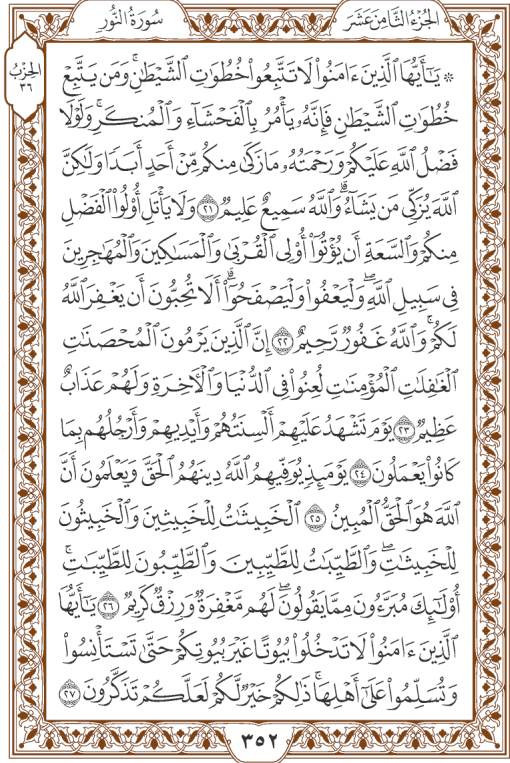 الجزء الثامن عشر
سورة النور
الحزب
٣٦
۞ يَٰٓأَيُّهَا ٱلَّذِينَ ءَامَنُوا۟ لَا تَتَّبِعُوا۟ خُطُوَٰتِ ٱلشَّيْطَٰنِ ۚ وَمَن يَتَّبِعْ
خُطُوَٰتِ ٱلشَّيْطَٰنِ فَإِنَّهُۥ يَأْمُرُ بِٱلْفَحْشَآءِ وَٱلْمُنكَرِ ۚ وَلَوْلَا
فَضْلُ ٱللَّهِ عَلَيْكُمْ وَرَحْمَتُهُۥ مَا زَكَىٰ مِنكُم مِّنْ أَحَدٍ أَبَدًا وَلَٰكِنَّ
ٱللَّهَ يُزَكِّى مَن يَشَآءُ ۗ وَٱللَّهُ سَمِيعٌ عَلِيمٌ ٢١ وَلَا يَأْتَلِ أُو۟لُوا۟ ٱلْفَضْلِ
مِنكُمْ وَٱلسَّعَةِ أَن يُؤْتُوٓا۟ أُو۟لِى ٱلْقُرْبَىٰ وَٱلْمَسَٰكِينَ وَٱلْمُهَٰجِرِينَ
فِى سَبِيلِ ٱللَّهِ ۖ وَلْيَعْفُوا۟ وَلْيَصْفَحُوٓا۟ ۗ أَلَا تُحِبُّونَ أَن يَغْفِرَ ٱللَّهُ
لَكُمْ ۗ وَٱللَّهُ غَفُورٌ رَّحِيمٌ ٢٢ إِنَّ ٱلَّذِينَ يَرْمُونَ ٱلْمُحْصَنَٰتِ
ٱلْغَٰفِلَٰتِ ٱلْمُؤْمِنَٰتِ لُعِنُوا۟ فِى ٱلدُّنْيَا وَٱلْءَاخِرَةِ وَلَهُمْ عَذَابٌ
عَظِيمٌ ٢٣ يَوْمَ تَشْهَدُ عَلَيْهِمْ أَلْسِنَتُهُمْ وَأَيْدِيهِمْ وَأَرْجُلُهُم بِمَا
كَانُوا۟ يَعْمَلُونَ ٢٤ يَوْمَئِذٍ يُوَفِّيهِمُ ٱللَّهُ دِينَهُمُ ٱلْحَقَّ وَيَعْلَمُونَ أَنَّ
ٱللَّهَ هُوَ ٱلْحَقُّ ٱلْمُبِينُ ٢٥ ٱلْخَبِيثَٰتُ لِلْخَبِيثِينَ وَٱلْخَبِيثُونَ
لِلْخَبِيثَٰتِ ۖ وَٱلطَّيِّبَٰتُ لِلطَّيِّبِينَ وَٱلطَّيِّبُونَ لِلطَّيِّبَٰتِ ۚ
أُو۟لَٰٓئِكَ مُبَرَّءُونَ مِمَّا يَقُولُونَ ۖ لَهُم مَّغْفِرَةٌ وَرِزْقٌ كَرِيمٌ ٢٦ يَٰٓأَيُّهَا
ٱلَّذِينَ ءَامَنُوا۟ لَا تَدْخُلُوا۟ بُيُوتًا غَيْرَ بُيُوتِكُمْ حَتَّىٰ تَسْتَأْنِسُوا۟
وَتُسَلِّمُوا۟ عَلَىٰٓ أَهْلِهَا ۚ ذَٰلِكُمْ خَيْرٌ لَّكُمْ لَعَلَّكُمْ تَذَكَّرُونَ ٢٧
٣٥٢